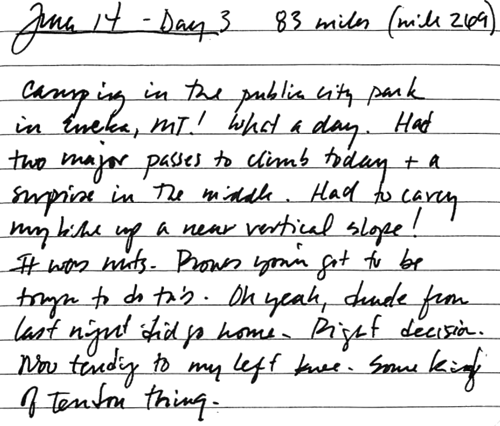 June 14 - Day 3 83 miles (mile 269)
Camping in the public city park
in Eureka, MT! What a day. Had
two major passes to climb today + a
surprise in the middle. Had to carry
my bike up a near vertical slope!
It was nuts. Proves you've got to be
tough to do this. Oh yeah, dude from
last night did go home. Right decision.
Now tending to my left knee. Some kind
of tendon thing.